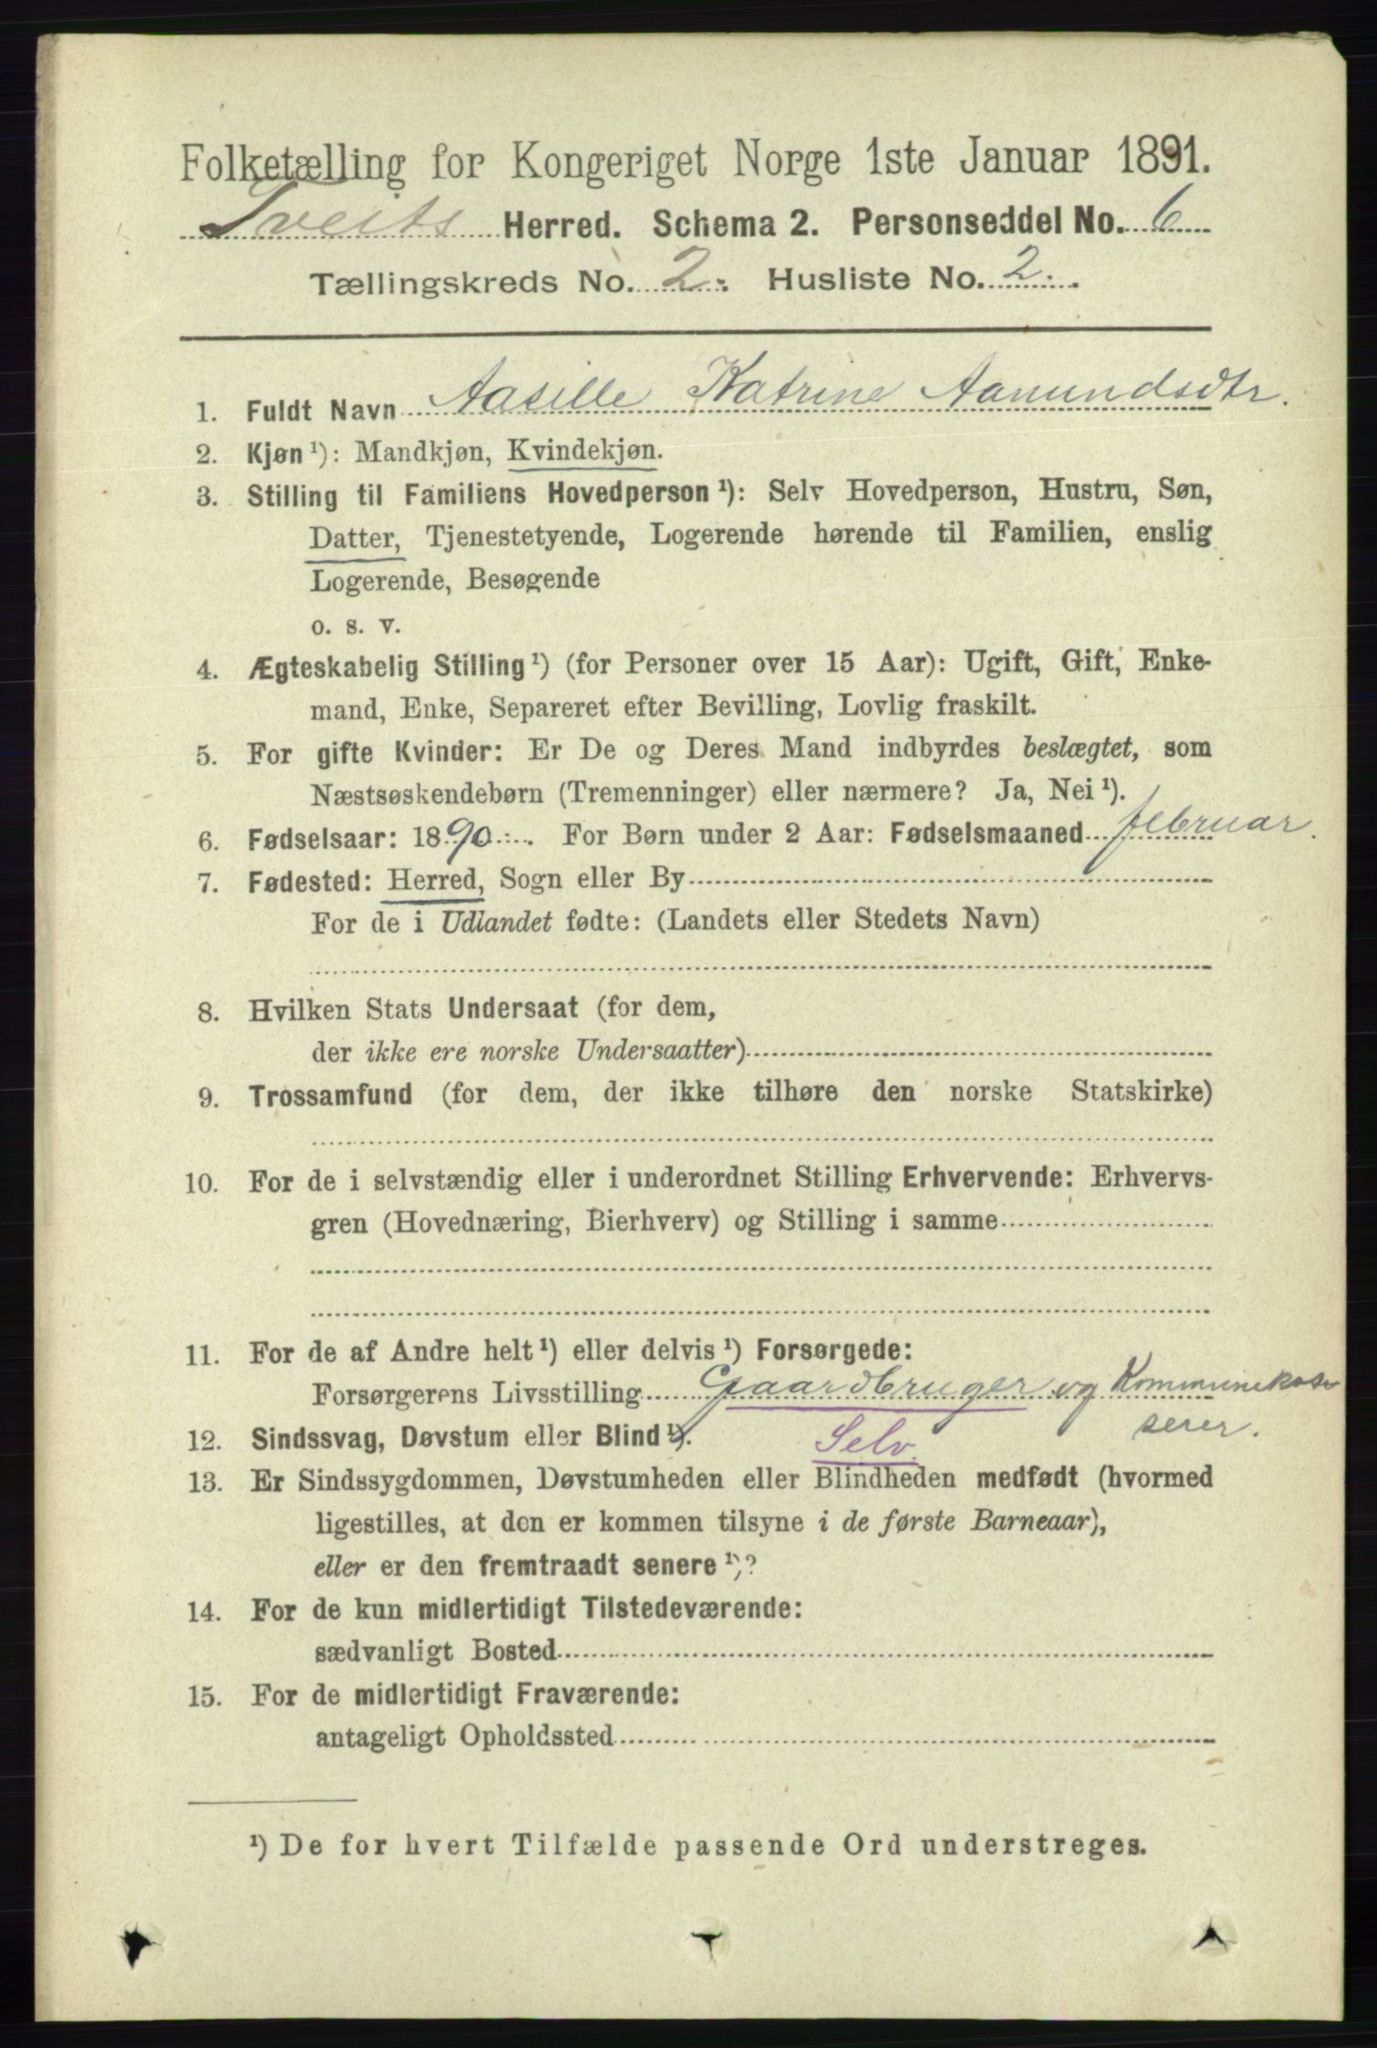 Folketælling for Kongeriget Norge 1ste Januar 1891.
Tveits Herred. Schema 2. Personseddel No. 6
Tællingskreds No. 2. Husliste No. 2.
1. Fuldt Navn Aasille Katrine Aamundsdtr.
2. Kjøn ¹): Mandkjøn, Kvindekjøn.
3. Stilling til Familiens Hovedperson ¹): Selv Hovedperson, Hustru, Søn,
Datter, Tjenestetyende, Logerende hørende til Familien, enslig
Logerende, Besøgende
o. s. v.
4. Ægteskabelig Stilling ¹) (for Personer over 15 Aar): Ugift, Gift, Enke-
mand, Enke, Separeret efter Bevilling, Lovlig fraskilt.
5. For gifte Kvinder: Er De og Deres Mand indbyrdes beslægtet, som
Næstsøskendebørn (Tremenninger) eller nærmere? Ja, Nei ¹).
6. Fødselsaar: 1890. For Børn under 2 Aar: Fødselsmaaned februar.
7. Fødested: Herred, Sogn eller By
For de i Udlandet fødte: (Landets eller Stedets Navn)
8. Hvilken Stats Undersaat (for dem,
der ikke ere norske Undersaatter)
9. Trossamfund (for dem, der ikke tilhøre den norske Statskirke)
10. For de i selvstændig eller i underordnet Stilling Erhvervende: Erhvervs-
gren (Hovednæring, Bierhverv) og Stilling i samme
11. For de af Andre helt ¹) eller delvis ¹) Forsørgede:
Forsørgerens Livsstilling Gaardbruger og Kommunekas-
serer.
12. Sindssvag, Døvstum eller Blind ¹). Selv.
13. Er Sindssygdommen, Døvstumheden eller Blindheden medfødt (hvormed
ligestilles, at den er kommen tilsyne i de første Barneaar),
eller er den fremtraadt senere ¹)?
14. For de kun midlertidigt Tilstedeværende:
sædvanligt Bosted
15. For de midlertidigt Fraværende:
antageligt Opholdssted
¹) De for hvert Tilfælde passende Ord understreges.